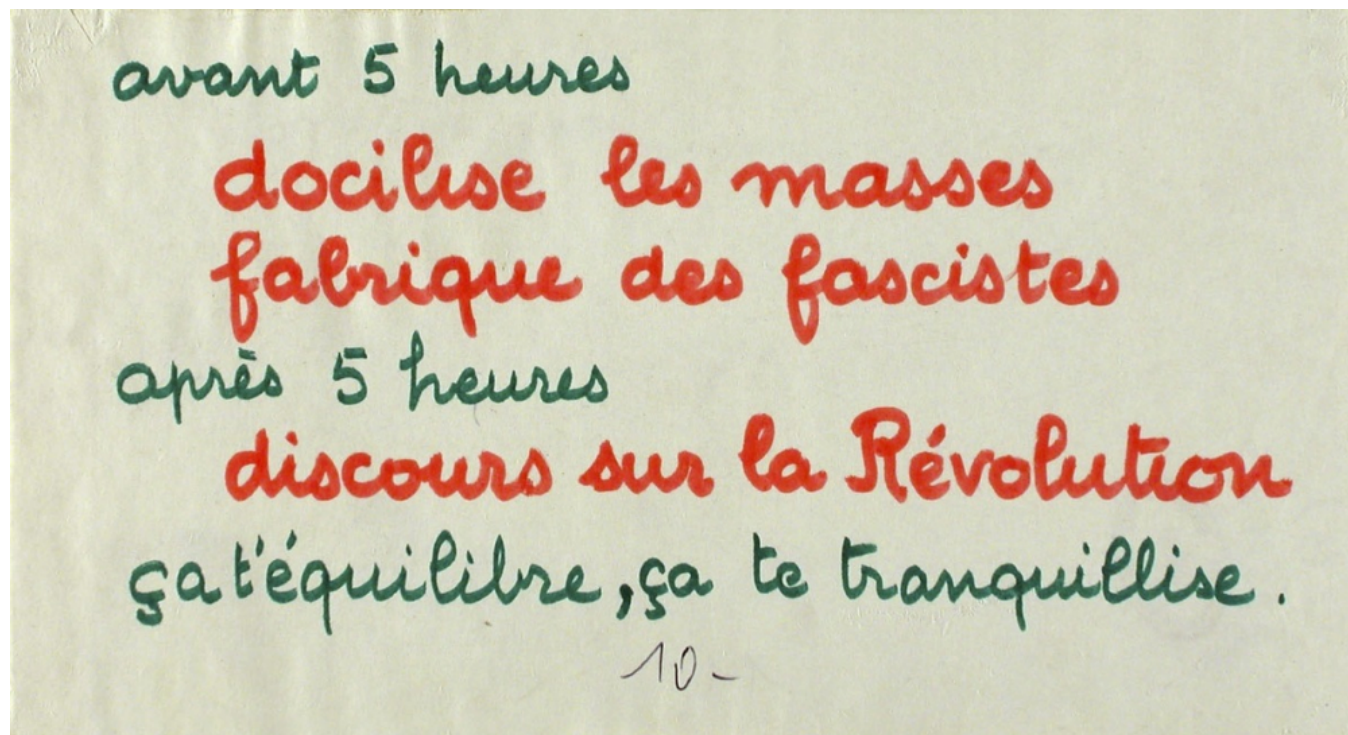 avant 5 heures
docilise les masses
fabrique des fascistes
après 5 heures
discours sur la Révolution
ça t'équilibre, ça te tranquillise.
10-